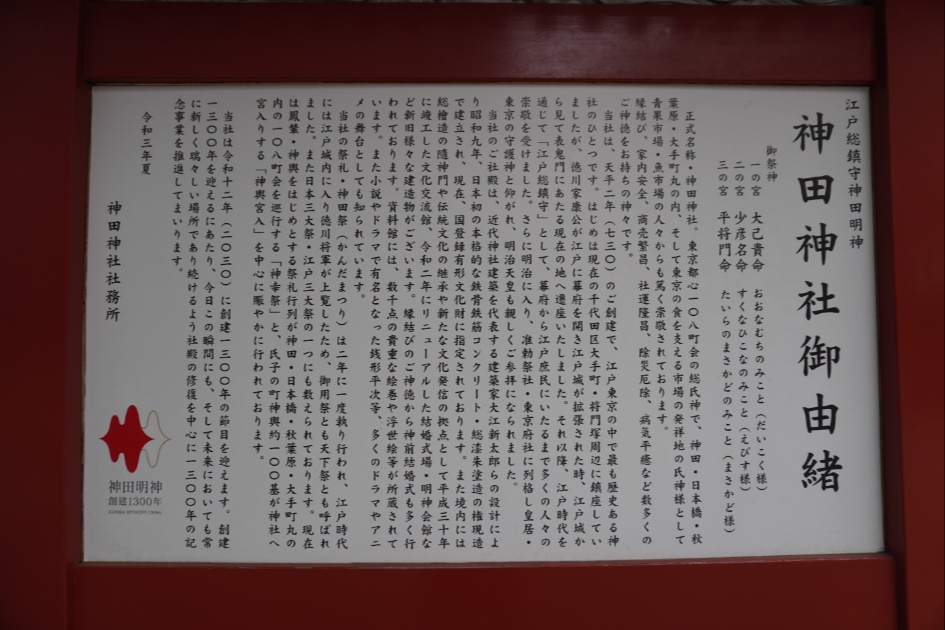 江戸総鎮守神田明神
神田神社御由緒
御祭神
一の宮 大己貴命 おおなむちのみこと（だいこく様）
二の宮 少彦名命 すくなひこなのみこと（えびす様）
三の宮 平将門命 たいらのまさかどのみこと（まさかど様）
正式名称・神田神社。東京都心一〇八町会の総氏神で、神田・日本橋・秋
葉原・大手町丸の内、そして東京の食を支える市場の発祥地の氏神様として
青果市場・魚市場の人々からも篤く崇敬されております。
縁結び、家内安全、商売繁昌、社運隆昌、除災厄除、病気平癒など数多くの
ご神徳をお持ちの神々です。
当社は、天平二年（七三〇）のご創建で、江戸東京の中で最も歴史ある神
社のひとつです。はじめは現在の千代田区大手町・将門塚周辺に鎮座してい
ましたが、徳川家康公が江戸に幕府を開き江戸城が拡張された時、江戸城か
ら見て表鬼門にあたる現在の地へ遷座いたしました。それ以降、江戸時代を
通じて「江戸総鎮守」として、幕府から江戸庶民にいたるまで多くの人々の
崇敬を受けました。さらに明治に入り、准勅祭社・東京府社に列格し皇居・
東京の守護神と仰がれ、明治天皇も親しくご参拝になられました。
当社のご社殿は、近代神社建築を代表する建築家大江新太郎らの設計によ
り昭和九年、日本初の本格的な鉄骨鉄筋コンクリート・総漆朱塗造の権現造
で建立され、現在、国登録有形文化財に指定されております。また境内には
総檜造の随神門や伝統文化の継承や新たな文化発信の拠点として平成三十年
に竣工した文化交流館、令和二年にリニューアルした結婚式場・明神会館な
ど新旧様々な建造物がございます。縁結びのご神徳から神前結婚式も多く行
われております。資料館には、数千点の貴重な絵巻や浮世絵等が所蔵されて
います。また小説やドラマで有名となった銭形平次等、多くのドラマやアニ
メの舞台としても知られています。
当社の祭礼・神田祭（かんだまつり）は二年に一度執り行われ、江戸時代
には江戸城内に入り徳川将軍が上覧したため、御用祭とも天下祭とも呼ばれ
ました。また日本三大祭・江戸三大祭の一つにも数えられております。現在
は鳳輦・神輿をはじめとする祭礼行列が神田・日本橋・秋葉原・大手町丸の
内の一〇八町会を巡行する「神幸祭」と、氏子の町神輿約一〇〇基が神社へ
宮入りする「神輿宮入」を中心に賑やかに行われております。
当社は令和十二年（二〇三〇）に創建一三〇〇年の節目を迎えます。創建
一三〇〇年を迎えるにあたり、今日この瞬間にも、そして未来においても常
に新しく瑞々しい場所であり続けるよう社殿の修復を中心に一三〇〇年の記
念事業を推進してまいります。
令和三年夏
神田神社社務所
神田明神
創建1300年